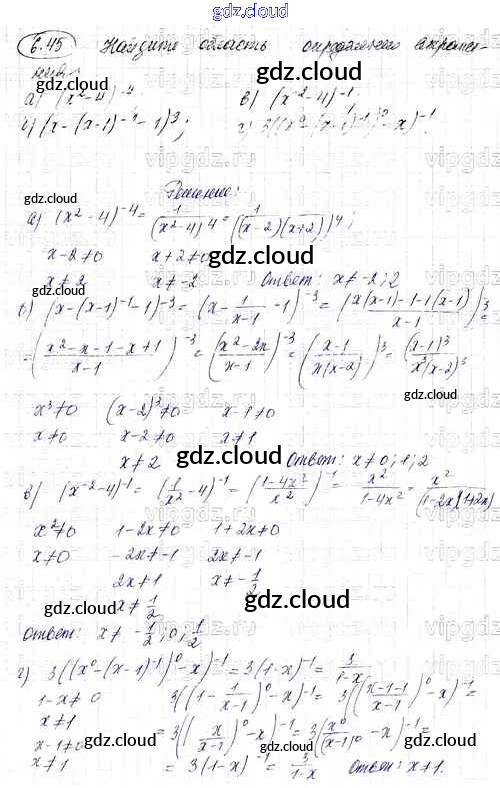 gdz.cloud
6.45 Найдите область определения выраже-
ния:
а) (x²-4)⁻⁴ в) (x⁻²-4)⁻¹.
б) (x-(x-1)⁻¹-1)⁻³; г) 3((x⁰-(x-1)⁻¹)⁰-x)⁻¹.
Решение:
а) (x²-4)⁻⁴ = 1/(x²-4)⁴ = 1/((x-2)(x+2))⁴;
x-2≠0 x+2≠0
x≠2 x≠-2 Ответ: x≠-2; 2
б) (x-(x-1)⁻¹-1)⁻³ = (x - 1/(x-1) - 1)⁻³ = ((x(x-1)-1-1(x-1))/(x-1))⁻³ =
= ((x²-x-1-x+1)/(x-1))⁻³ = ((x²-2x)/(x-1))⁻³ = ((x-1)/(x(x-2)))³ = (x-1)³/(x³(x-2)³)
x³≠0 (x-2)³≠0 x-1≠0
x≠0 x-2≠0 x≠1
x≠2 Ответ: x≠0; 1; 2
в) (x⁻²-4)⁻¹ = (1/x² - 4)⁻¹ = ((1-4x²)/x²)⁻¹ = x²/(1-4x²) = x²/((1-2x)(1+2x))
x²≠0 1-2x≠0 1+2x≠0
x≠0 -2x≠-1 2x≠-1
2x≠1 x≠-1/2
x≠1/2
Ответ: x≠ -1/2; 0; 1/2
г) 3((x⁰-(x-1)⁻¹)⁰-x)⁻¹ = 3(1-x)⁻¹ = 3/(1-x)
1-x≠0 3((1 - 1/(x-1))⁰-x)⁻¹ = 3(((x-1-1)/(x-1))⁰-x)⁻¹ =
x≠1
x-1≠0 = 3((x/(x-1))⁰-x)⁻¹ = 3(x⁰/(x-1)⁰ - x)⁻¹ =
x≠1 = 3(1-x)⁻¹ = 3/(1-x) Ответ: x≠1.